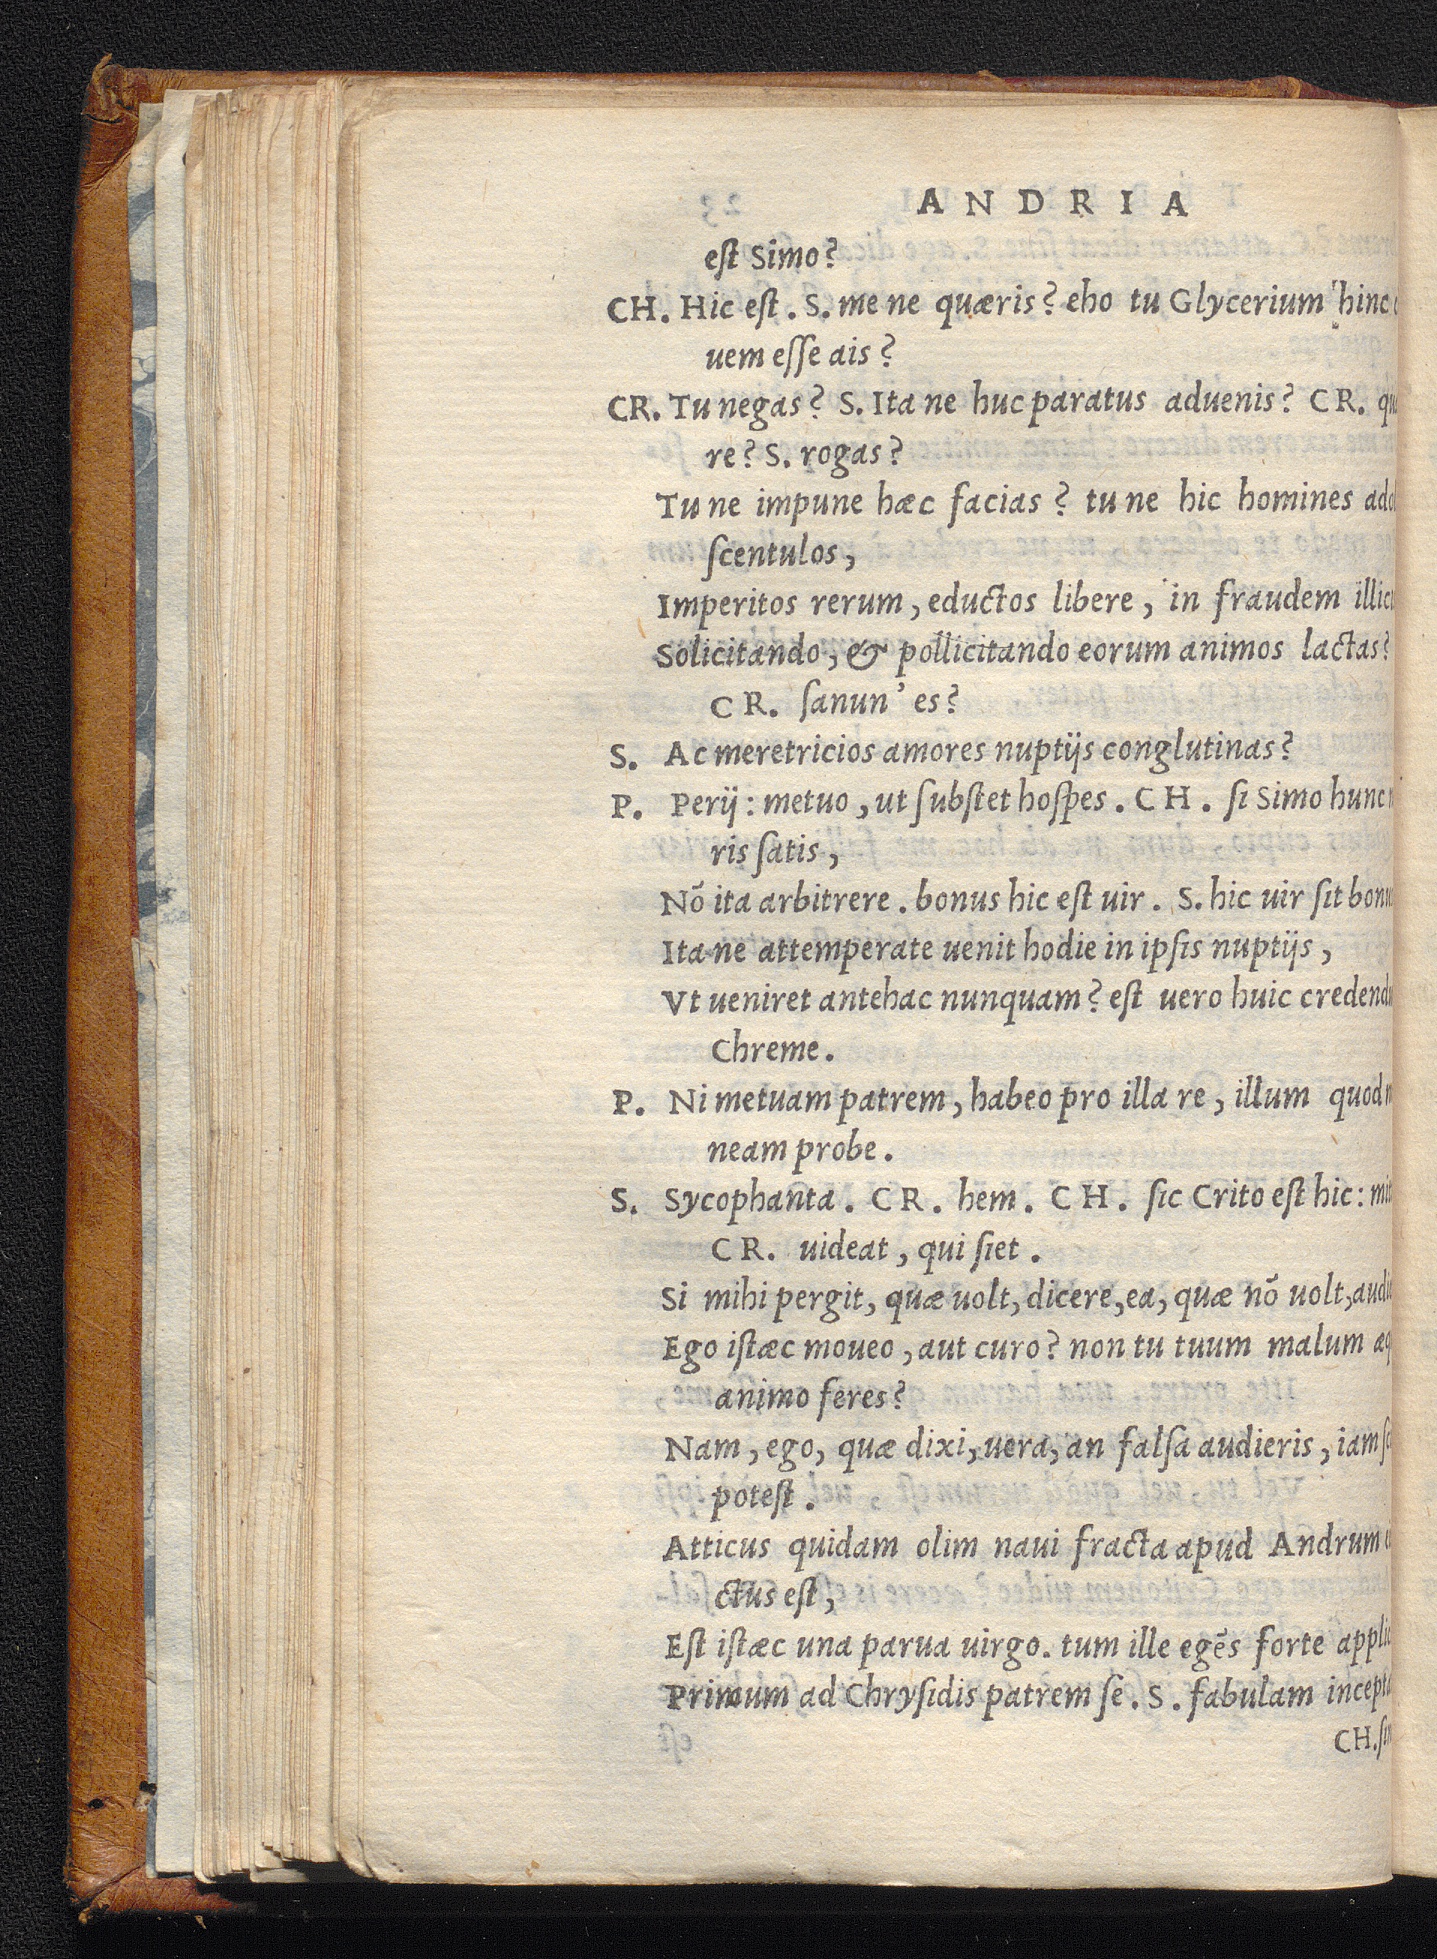 ANDRIA
est Simo?
CH. Hic est. S. me ne quæris? eho tu Glycerium hinc
uem esse ais?
CR. Tu negas? S. Ita ne huc paratus aduenis? CR.
re? S. rogas?
Tu ne impune hæc facias? tu ne hic homines
scentulos,
Imperitos rerum, eductos libere, in fraudem
Solicitando, & pollicitando eorum animos lactas?
CR. sanun' es?
S. Ac meretricios amores nuptijs conglutinas?
P. Perij: metuo, ut substet hospes. CH. si Simo hunc
ris satis,
Nõ ita arbitrere. bonus hic est uir. S. hic uir sit
Ita ne attemperate uenit hodie in ipsis nuptijs,
Vt ueniret antehac nunquam? est uero huic
Chreme.
P. Ni metuam patrem, habeo pro illa re, illum quod
neam probe.
S. Sycophanta. CR. hem. CH. sic Crito est hic:
CR. uideat, qui siet.
Si mihi pergit, quæ uolt, dicere, ea, quæ nõ uolt,
Ego istæc moueo, aut curo? non tu tuum malum
animo feres?
Nam, ego, quæ dixi, uera, an falsa audieris, iam
potest.
Atticus quidam olim naui fracta apud Andrum
ctus est,
Est istæc una parua uirgo. tum ille egẽs forte
Primum ad Chrysidis patrem se. S. fabulam
CH.